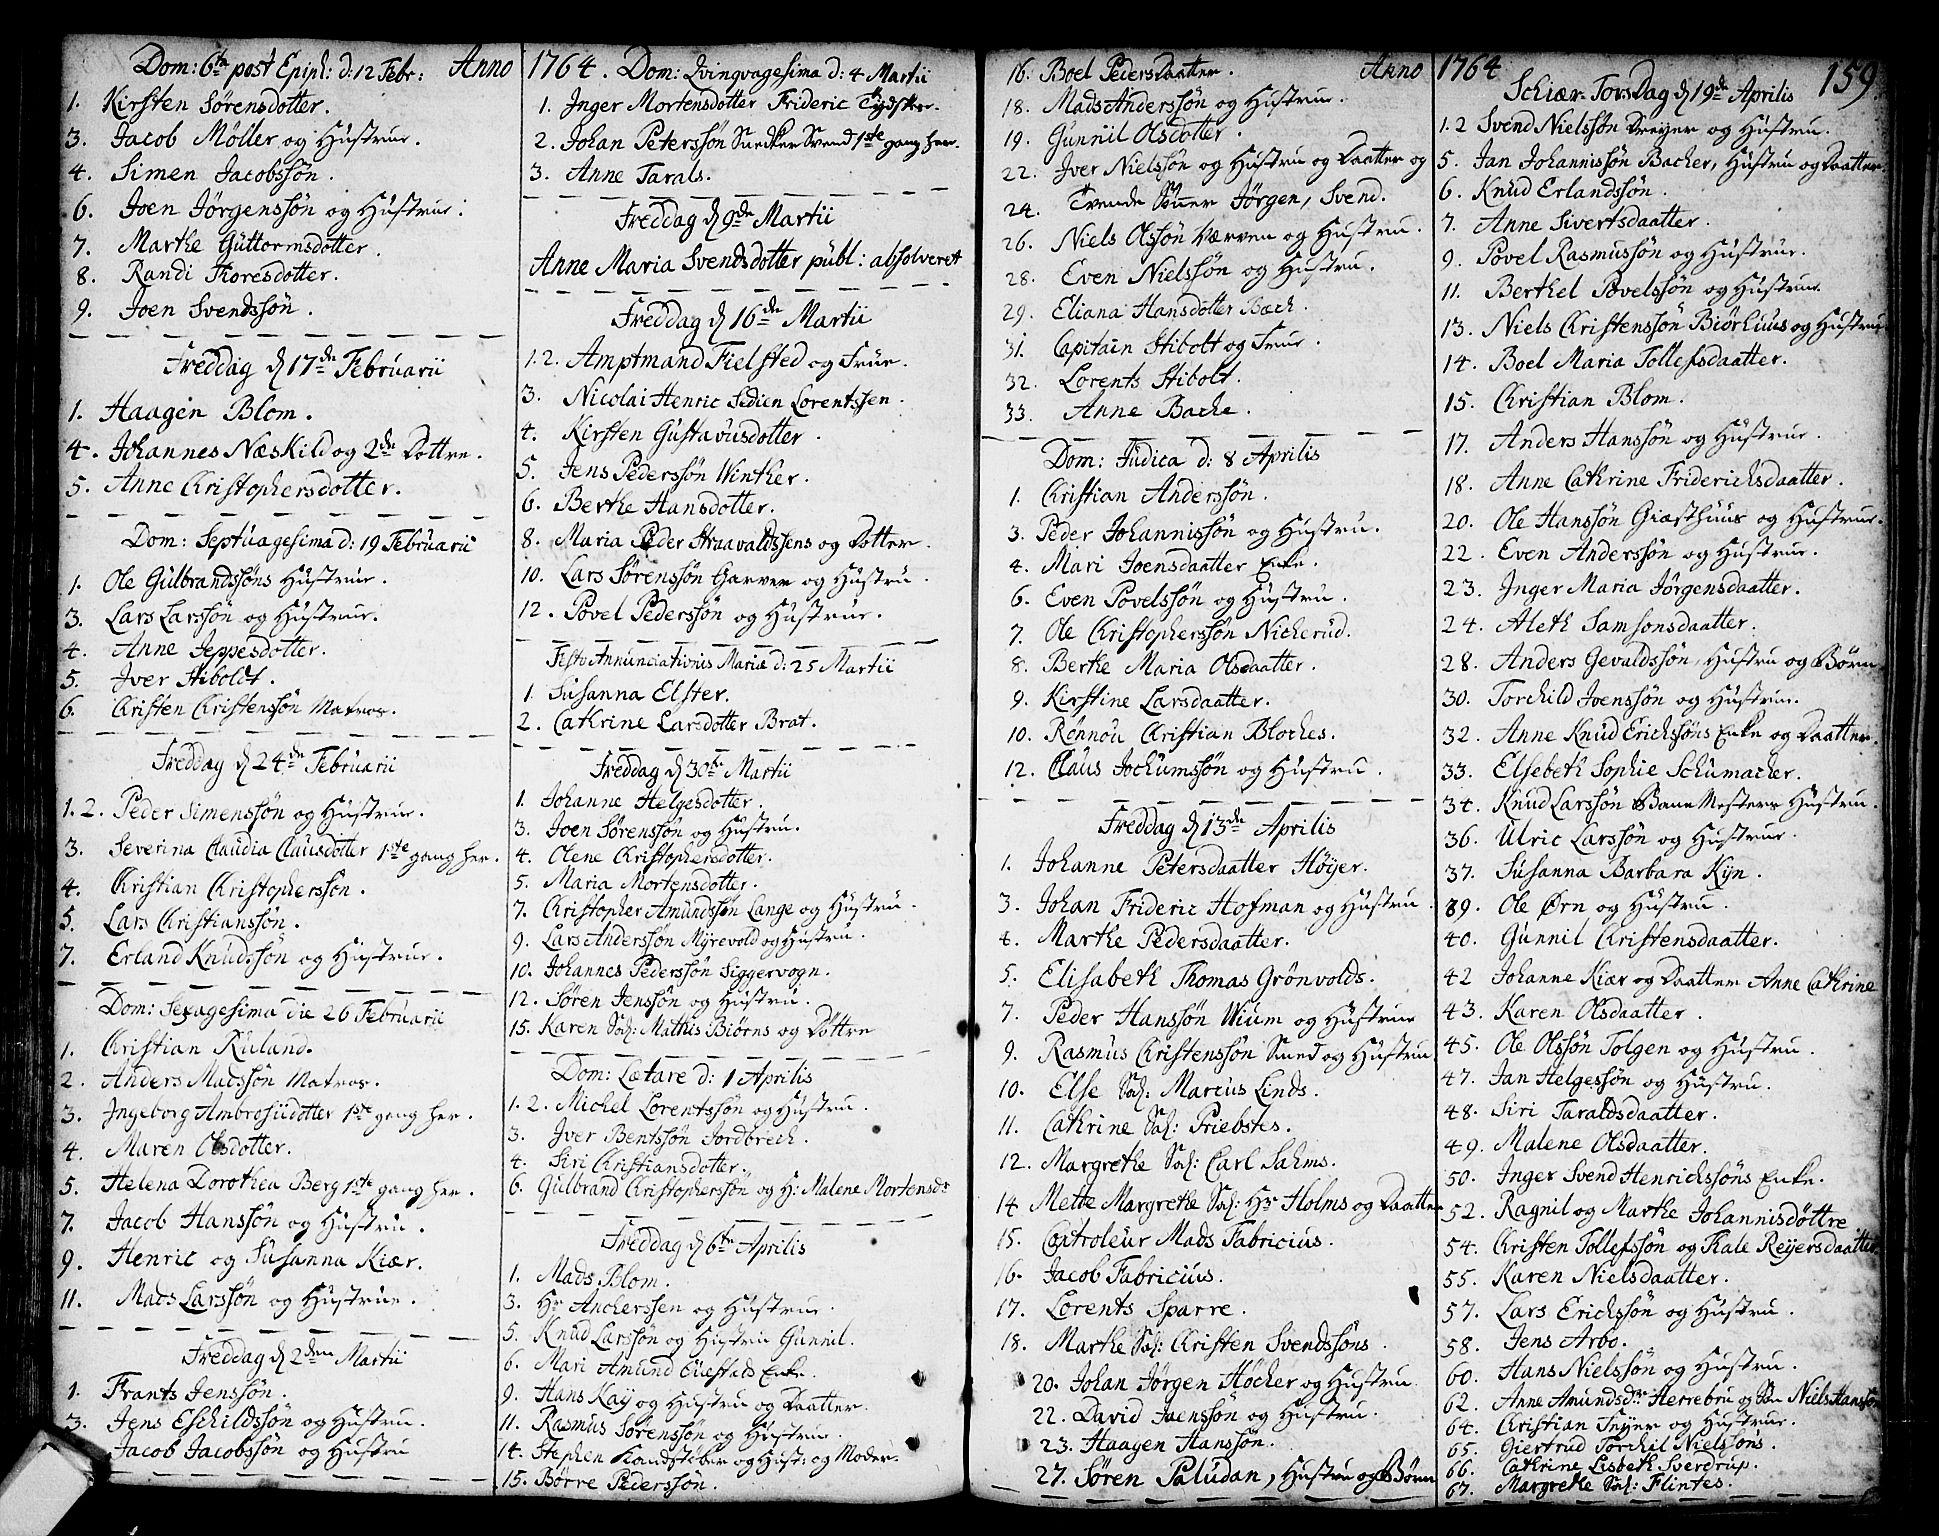 Dom: 6te post Epiph: d: 12 Febr: Anno
1. Kirsten Sörensdotter.
3. Jacob Møller og Hustrue.
4. Simen Jacobssön.
6. Joen Jörgenssön og Hustrue.
7. Marthe Guttormsdotter.
8. Randi Floresdotter.
9. Joen Svendssön.
Freddag d 17de Februarii
1. Haagen Blom.
4. Johannes Næskild og 2de Dottre.
5. Anne Christophersdotter.
Dom: Septuagesima d: 19 Februarii
1. Ole Gulbrandssöns Hustrue.
3. Lars Larssön og Hustrue.
4. Anne Jeppesdotter.
5. Iver Stiboldt.
6. Christen Christenssön Matros.
Freddag d 24de Februarii
1. 2. Peder Simenssön og Hustrue.
3. Severina Claudia Clausdotter 1ste gang her.
4. Christian Christopherssön.
5. Lars Christianssön.
7. Erland Knudssön og Hustrue.
Dom: Sexagesima die 26 Februarii
1. Christian Ruland.
2. Anders Madssön Matros.
3. Ingeborg Ambrosiidotter 1ste gang her.
4. Maren Olsdotter.
5. Helena Dorothea Berg 1ste gang her.
7. Jacob Hanssön og Hustru.
9. Henric og Susanna Kiær.
11. Mads Larssön og Hustrue.
Freddag d 2den Martii
1. Frants Jenssön.
3. Jens Eschildssön og Hustru.
Jacob Jacobssön og Hustru
1764. Dom: Qvingvagesima d: 4 Martii
1. Inger Mortensdotter Frideric Tydsker.
2. Johan Peterssön Snedker Svend 1ste gang her.
3. Anne Tarals.
Freddag d 9de Martii
Anne Maria Svendsdotter publ: absolveret
Freddag d 16de Martii
1. 2. Amptmand Fielsted og Frue.
3. Nicolai Henric Sedien Lorentssen.
4. Kirsten Gustavusdotter.
5. Jens Pederssön Winther.
6. Berthe Hansdotter.
8. Maria Peder Straavaldssens og Dotter.
10. Lars Sörenssön Garver og Hustru.
12. Povel Pederssön og Hustrue.
Festo Annunciationis Mariæ d: 25 Martii
1. Susanna Elster.
2. Cathrine Larsdotter Brat.
Freddag d 30te Martii
1. Johanne Helgesdotter.
3. Joen Sörenssön og Hustru.
4. Olene Christophersdotter.
5. Maria Mortensdotter.
7. Christopher Amundssön Lange og Hustru.
9. Lars Anderssön Myrevold og Hustru.
10. Johannes Pederssön Siggervogn.
12. Sören Jenssön og Hustru.
15. Karen Sal: Mathis Biörns og Döttre
Dom: Lætare d: 1 Aprilis
1. 2. Michel Lorentssön og Hustru.
3. Iver Bentssön Jordbrech.
4. Siri Christiansdotter.
6. Gulbrand Christopherssön og H: Malene Mortensdr
Freddag d 6te Aprilis
1. Mads Blom.
3. Hr Ancherssen og Hustrue.
5. Knud Larssön og Hustru Gunnil.
6. Mari Amund Enke.
9. Hans Kay og Hustru og Daatter.
11. Rasmus Sörenssön og Hustru.
14. Stephen Kandstöber og Hust: og Moder.
15. Börre Pederssön.
16. Boel Pedersdaatter. Anno
18. Mads Anderssön og Hustrue.
19. Gunnil Olsdotter.
22. Iver Nielssön og Hustru og Daatter og
24. Tvende Sönner Jörgen, Svend.
26. Niels Olssön Værven og Hustru.
28. Even Nielssön og Hustru.
29. Eliana Hansdotter Bach.
31. Capitain Stibolt og Frue.
32. Lorents Stibolt.
33. Anne Bache.
Dom: Judica d: 8 Aprilis
1. Christian Anderssön.
3. Peder Johannissön og Hustru.
4. Mari Joensdaatter Enke.
6. Even Povelssön og Hustru.
7. Ole Christopherssön Nicherud.
8. Berthe Maria Olsdaatter.
9. Kirstine Larsdaatter.
10. Rönnou Christian Bloches.
12. Claus Jochumssön og Hustru.
Freddag d 13de Aprilis
1. Johanne Petersdaatter Höyer.
3. Johan Frideric Hofman og Hustru.
4. Marthe Pedersdaatter.
5. Elisabeth Thomas Grönvolds.
7. Peder Hanssön Wium og Hustrue
9. Rasmus Christenssön Smed og Hustru
10. Else Sal: Marcus Linds.
11. Cathrine Sal: Priebstes.
12. Margrethe Sal: Carl Sahms.
14 Mette Margrethe Sal: Hr Holms og Daatter
15. Controleur Mads Fabricius.
16. Jacob Fabricius.
17. Lorents Sparre.
18. Marthe Sal: Christen Svendssöns.
20. Johan Jörgen Höcher og Hustru.
22. David Joenssön og Hustru.
23. Haagen Hanssön.
27. Sören Paludan, Hustru og Börn
1764 159
Schiær-Torsdag d 19de Aprilis
1. 2 Svend Nielssön Dreyer og Hustru.
5. Jan Johannissön Bacher, Hustru og Daatter.
6. Knud Erlandssön.
7. Anne Sivertsdaatter.
9. Povel Rasmussön og Hustrue.
11. Berthel Povelssön og Hustrue.
13. Niels Christenssön Biörlius og Hustrue
14. Boel Maria Tollefsdaatter.
15. Christian Blom.
17. Anders Hanssön og Hustrue.
18. Anne Cathrine Friderichsdaatter.
20. Ole Hanssön Giæsthuus og Hustrue.
22. Even Anderssön og Hustrue.
23. Inger Maria Jörgensdaatter.
24. Aleth Samsonsdaatter.
28. Anders Gevaldssön, Hustru og Börn
30. Torchild Joenssön og Hustrue.
32. Anne Knud Erichssöns Enke og Daatter.
33. Elsebeth Sophie Schumacher.
34. Knud Larssön Banemesters Hustru.
36. Ulric Larssön og Hustrue.
37. Susanna Barbara Kyn.
39. Ole Ørn og Hustru.
40. Gunnil Christensdaatter.
42 Johanne Kiær og Daatter Anne Cathrine
43. Karen Olsdaatter.
45. Ole Olssön Tolgen og Hustru.
47. Jan Helgessön og Hustru.
48. Siri Taraldsdaatter.
49. Malene Olsdaatter.
50. Inger Svend Henrichssöns Enke.
52. Ragnil og Marthe Johannisdöttre
54. Christen Tollefssön og Kale Reyersdaatter.
55. Karen Nielsdaatter.
57. Lars Erichssön og Hustru.
58. Jens Arbo.
60. Hans Nielssön og Hustru.
62. Anne Amundsdr Herrebru og Sön Niels Hanssön
64. Christian Feyer og Hustrue.
65. Giertrud Torchil Nielssöns.
66. Cathrine Lisbeth Sverdrup.
67. Margrethe Sal: Flintes.